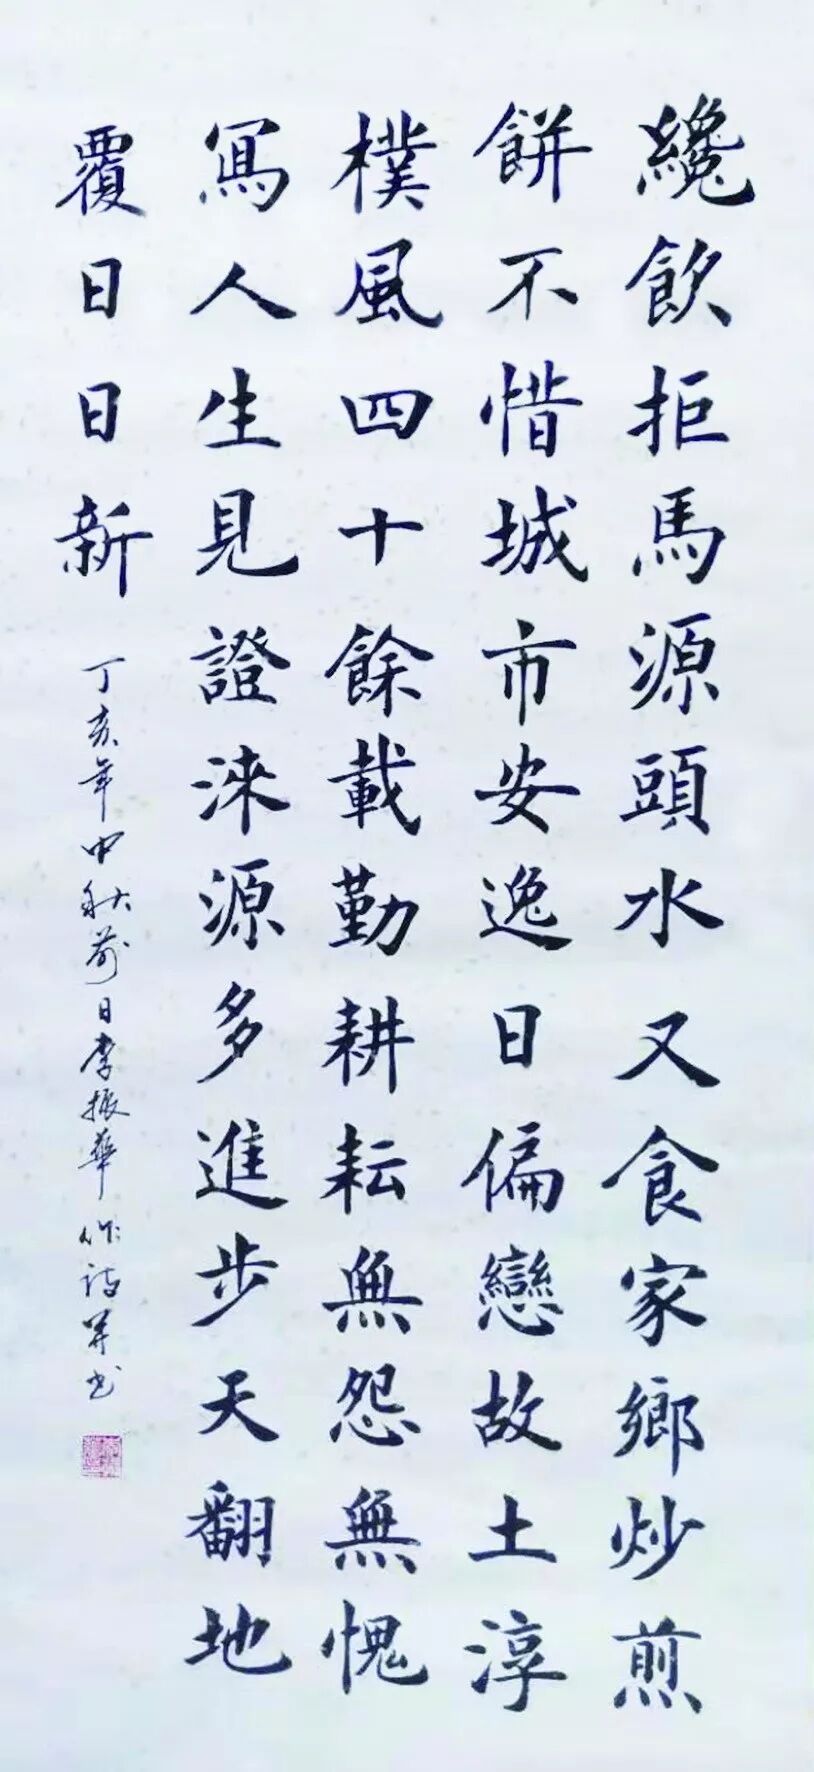 纔飲拒馬源頭水又食家鄉炒煎
餅不惜城市安逸日偏戀故土淳
樸風四十餘載勤耕耘無怨無愧
寫人生見證淶源多進步天翻地
覆日日新
丁亥年中秋前日李振華作詩並書